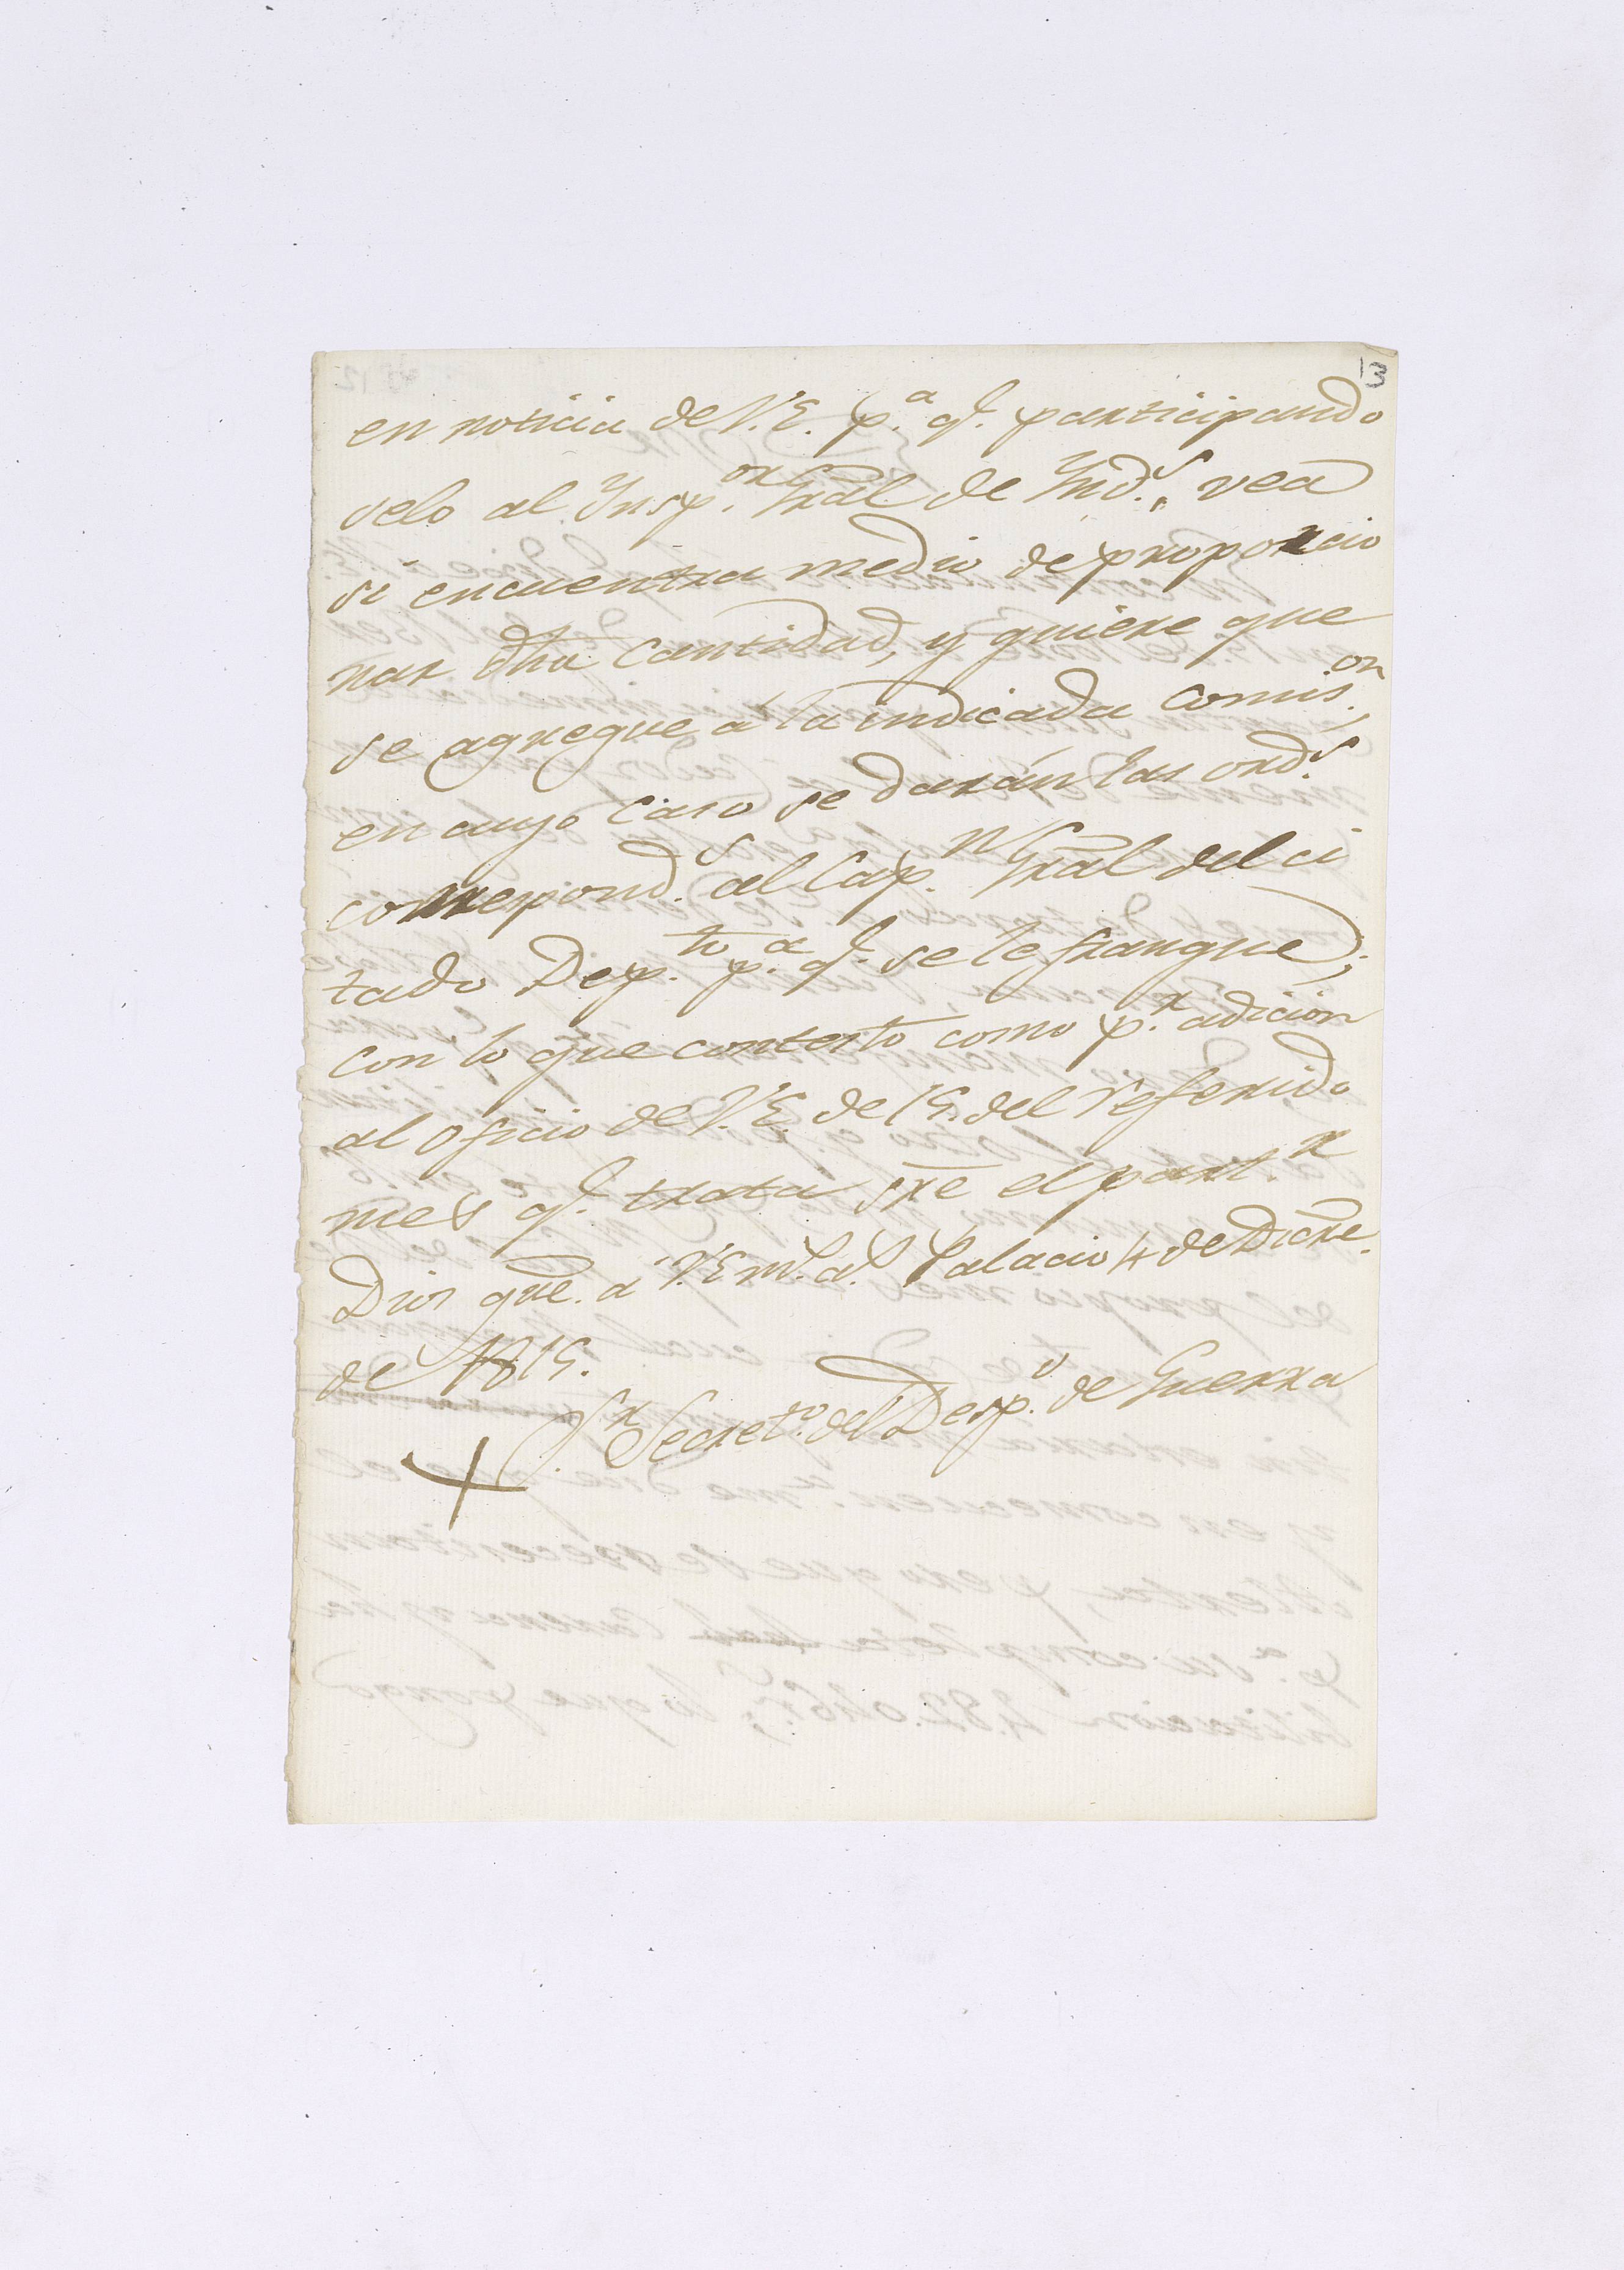 13
en noticia de V.E. p.ª q.e participando
selo al Ynsp.or Gral de Ynd.s vea
si encuentra medio de proporcio
nar dha cantidad, y quiere que
se agregue á la indicada comis.on,
en cuyo caso se darán las ord.s
correspond.s al Cap.n Gral del ci
tado Dep.to p.ª q.e se le franque;
con lo que contesto como p.r adicion
al oficio de V.E. de 15. del referido
mes q.e trata sre el part.r
Dios gue. á V.E. m.s a.s Palacio 4 de Dicre.
de 1815.
S.r Secret.o del Desp.o de Guerra